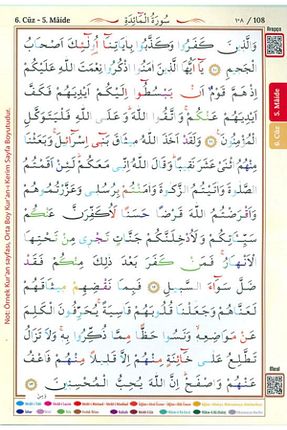 6. Cüz - 5. Mâide
سُورَةُ الْمَائِدَةِ
١٠٨ / 108
وَالَّذِينَ كَفَرُوا وَكَذَّبُوا بِاٰيَاتِنَٓا اُو۬لٰٓئِكَ اَصْحَابُ
الْجَحٖيمِ ﴿١٠﴾ يَٓا اَيُّهَا الَّذٖينَ اٰمَنُوا اذْكُرُوا نِعْمَتَ اللّٰهِ عَلَيْكُمْ
اِذْ هَمَّ قَوْمٌ اَنْ يَبْسُطُٓوا اِلَيْكُمْ اَيْدِيَهُمْ فَكَفَّ
اَيْدِيَهُمْ عَنْكُمْۚ وَاتَّقُوا اللّٰهَۜ وَعَلَى اللّٰهِ فَلْيَتَوَكَّلِ
الْمُؤْمِنُونَ۟ ﴿١١﴾ وَلَقَدْ اَخَذَ اللّٰهُ مٖيثَاقَ بَنٖٓي اِسْرَٓائٖلَۚ وَبَعَثْنَا
مِنْهُمُ اثْنَيْ عَشَرَ نَقٖيباًۜ وَقَالَ اللّٰهُ اِنّٖي مَعَكُمْۜ لَئِنْ اَقَمْتُمُ
الصَّلٰوةَ وَاٰتَيْتُمُ الزَّكٰوةَ وَاٰمَنْتُمْ بِرُسُلٖي وَعَزَّرْتُمُوهُمْ
وَاَقْرَضْتُمُ اللّٰهَ قَرْضاً حَسَناً لَاُكَفِّرَنَّ عَنْكُمْ
سَيِّـَٔاتِكُمْ وَلَاُدْخِلَنَّكُمْ جَنَّاتٍ تَجْرٖي مِنْ تَحْتِهَا
الْاَنْهَارُۚ فَمَنْ كَفَرَ بَعْدَ ذٰلِكَ مِنْكُمْ فَقَدْ
ضَلَّ سَوَٓاءَ السَّبٖيلِ ﴿١٢﴾ فَبِمَا نَقْضِهِمْ مٖيثَاقَهُمْ
لَعَنَّاهُمْ وَجَعَلْنَا قُلُوبَهُمْ قَاسِيَةًۚ يُحَرِّفُونَ الْكَلِمَ
عَنْ مَوَاضِعِهٖۙ وَنَسُوا حَظًّا مِمَّا ذُكِّرُوا بِهٖۚ وَلَا تَزَالُ
تَطَّلِعُ عَلٰى خَٓائِنَةٍ مِنْهُمْ اِلَّا قَلٖيلاً مِنْهُمْ فَاعْفُ
عَنْهُمْ وَاصْفَحْۜ اِنَّ اللّٰهَ يُحِبُّ الْمُحْسِنٖينَ ﴿١٣﴾
Arapça
5. Mâide
6. Cüz
Meal
Not: Örnek Kur'an sayfası, Orta Boy Kur'an-ı Kerim Sayfa Boyutudur.